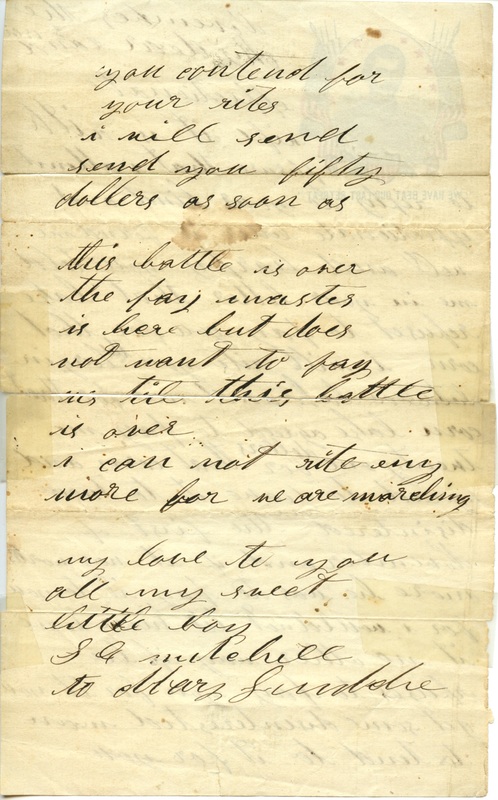 you contend for
your rites
i will send
send you fifty
dollers as soon as
this battle is over
the pay master
is here but does
not want to pay
us til this battle
is over
i can not rite eny
more for we are marching
my love to you
all my sweet
little boy
S G mitchell
to Mary